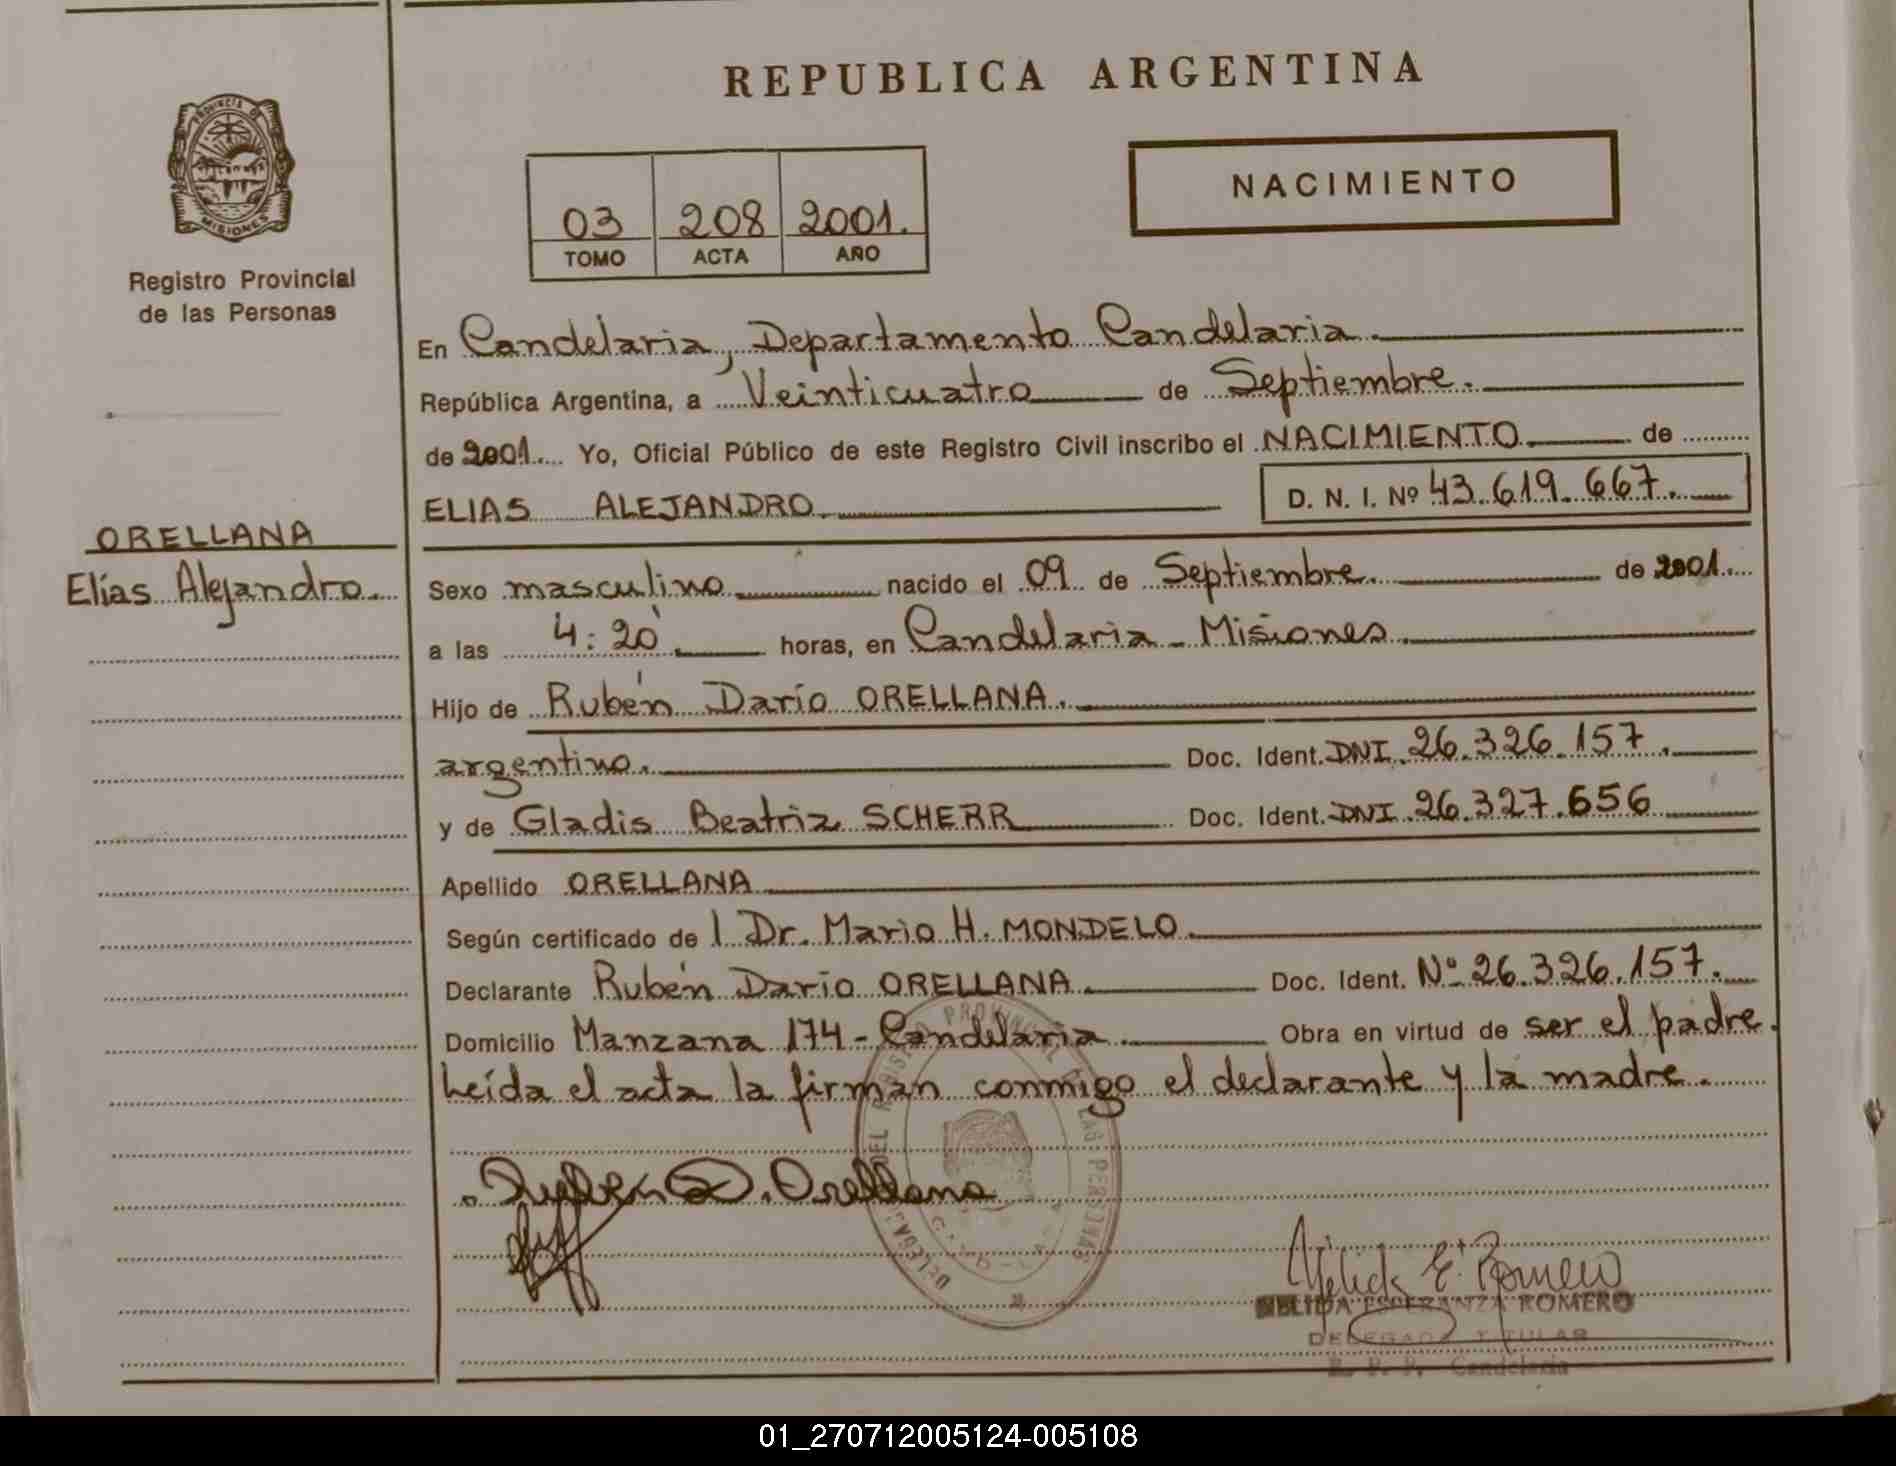 REPUBLICA ARGENTINA
PROVINCIA DE
MISIONES
Registro Provincial
de las Personas
03 208 2001.
TOMO ACTA AÑO
NACIMIENTO
En Candelaria, Departamento Candelaria.
República Argentina, a Veinticuatro de Septiembre.
de 2001. Yo, Oficial Público de este Registro Civil inscribo el NACIMIENTO de
ELIAS ALEJANDRO
D. N. I. Nº 43.619.667.
ORELLANA
Elías Alejandro.
Sexo masculino nacido el 09 de Septiembre. de 2001.
a las 4:20 horas, en Candelaria - Misiones.
Hijo de Rubén Darío ORELLANA.
argentino. Doc. Ident. DNI. 26.326.157.
y de Gladis Beatriz SCHERR Doc. Ident. DNI. 26.327.656
Apellido ORELLANA
Según certificado de l Dr. Mario H. MONDELO.
Declarante Rubén Darío ORELLANA. Doc. Ident. Nº 26.326.157.
Domicilio Manzana 174 - Candelaria. Obra en virtud de ser el padre.
Leída el acta la firman conmigo el declarante y la madre.
DELEGA DEL REGISTRO PROVINCIAL DE LAS PERSONAS
Ruben D. Orellana
Nelida E. Romero
NELIDA ESPERANZA ROMERO
DELEGADA TITULAR
R. P. P. Candelaria
01_270712005124-005108